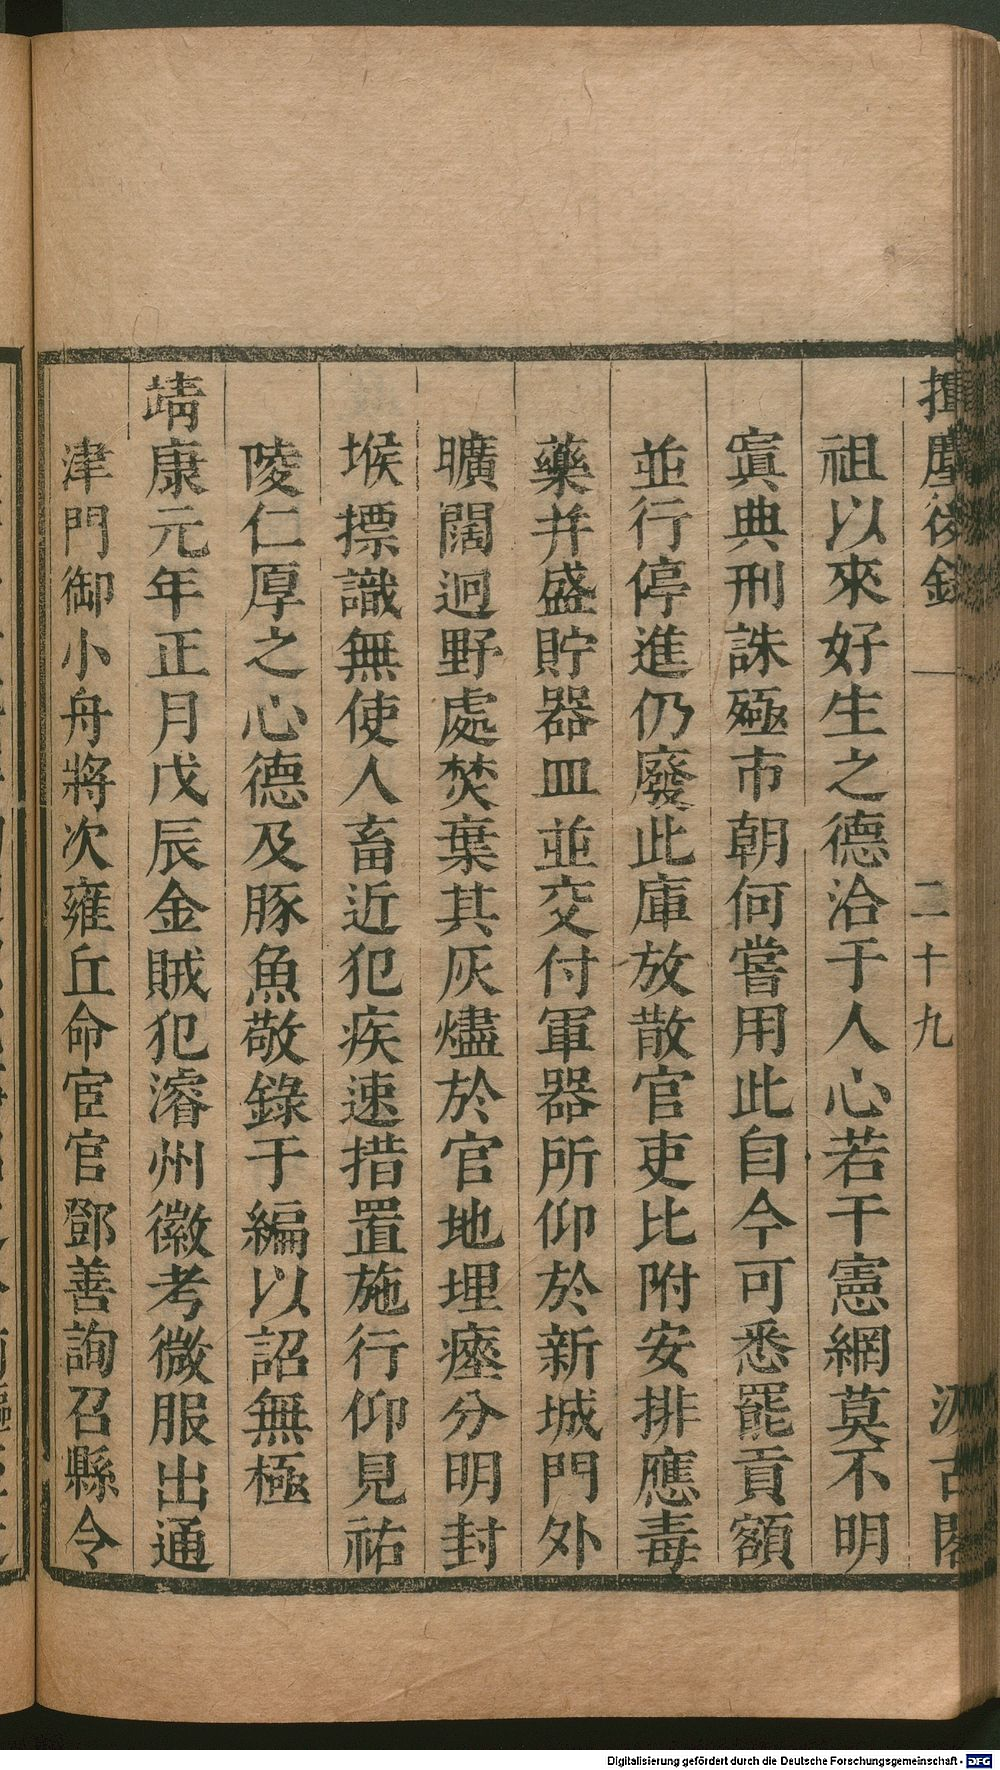 揮麈後錄 一 二十九 汲古閣
祖以來好生之德洽于人心若干憲網莫不明
寘典刑誅殛市朝何嘗用此自今可悉罷貢額
並行停進仍廢此庫放散官吏比附安排應毒
藥并盛貯器皿並交付軍器所仰於新城門外
曠闊迥野處焚棄其灰燼於官地埋瘞分明封
堠摽識無使人畜近犯疾速措置施行仰見祐
陵仁厚之心德及豚魚敬錄于編以詔無極
靖康元年正月戊辰金賊犯濬州徽考微服出通
津門御小舟將次雍丘命宦官鄧善詢召縣令
Digitalisierung gefördert durch die Deutsche Forschungsgemeinschaft - DFG